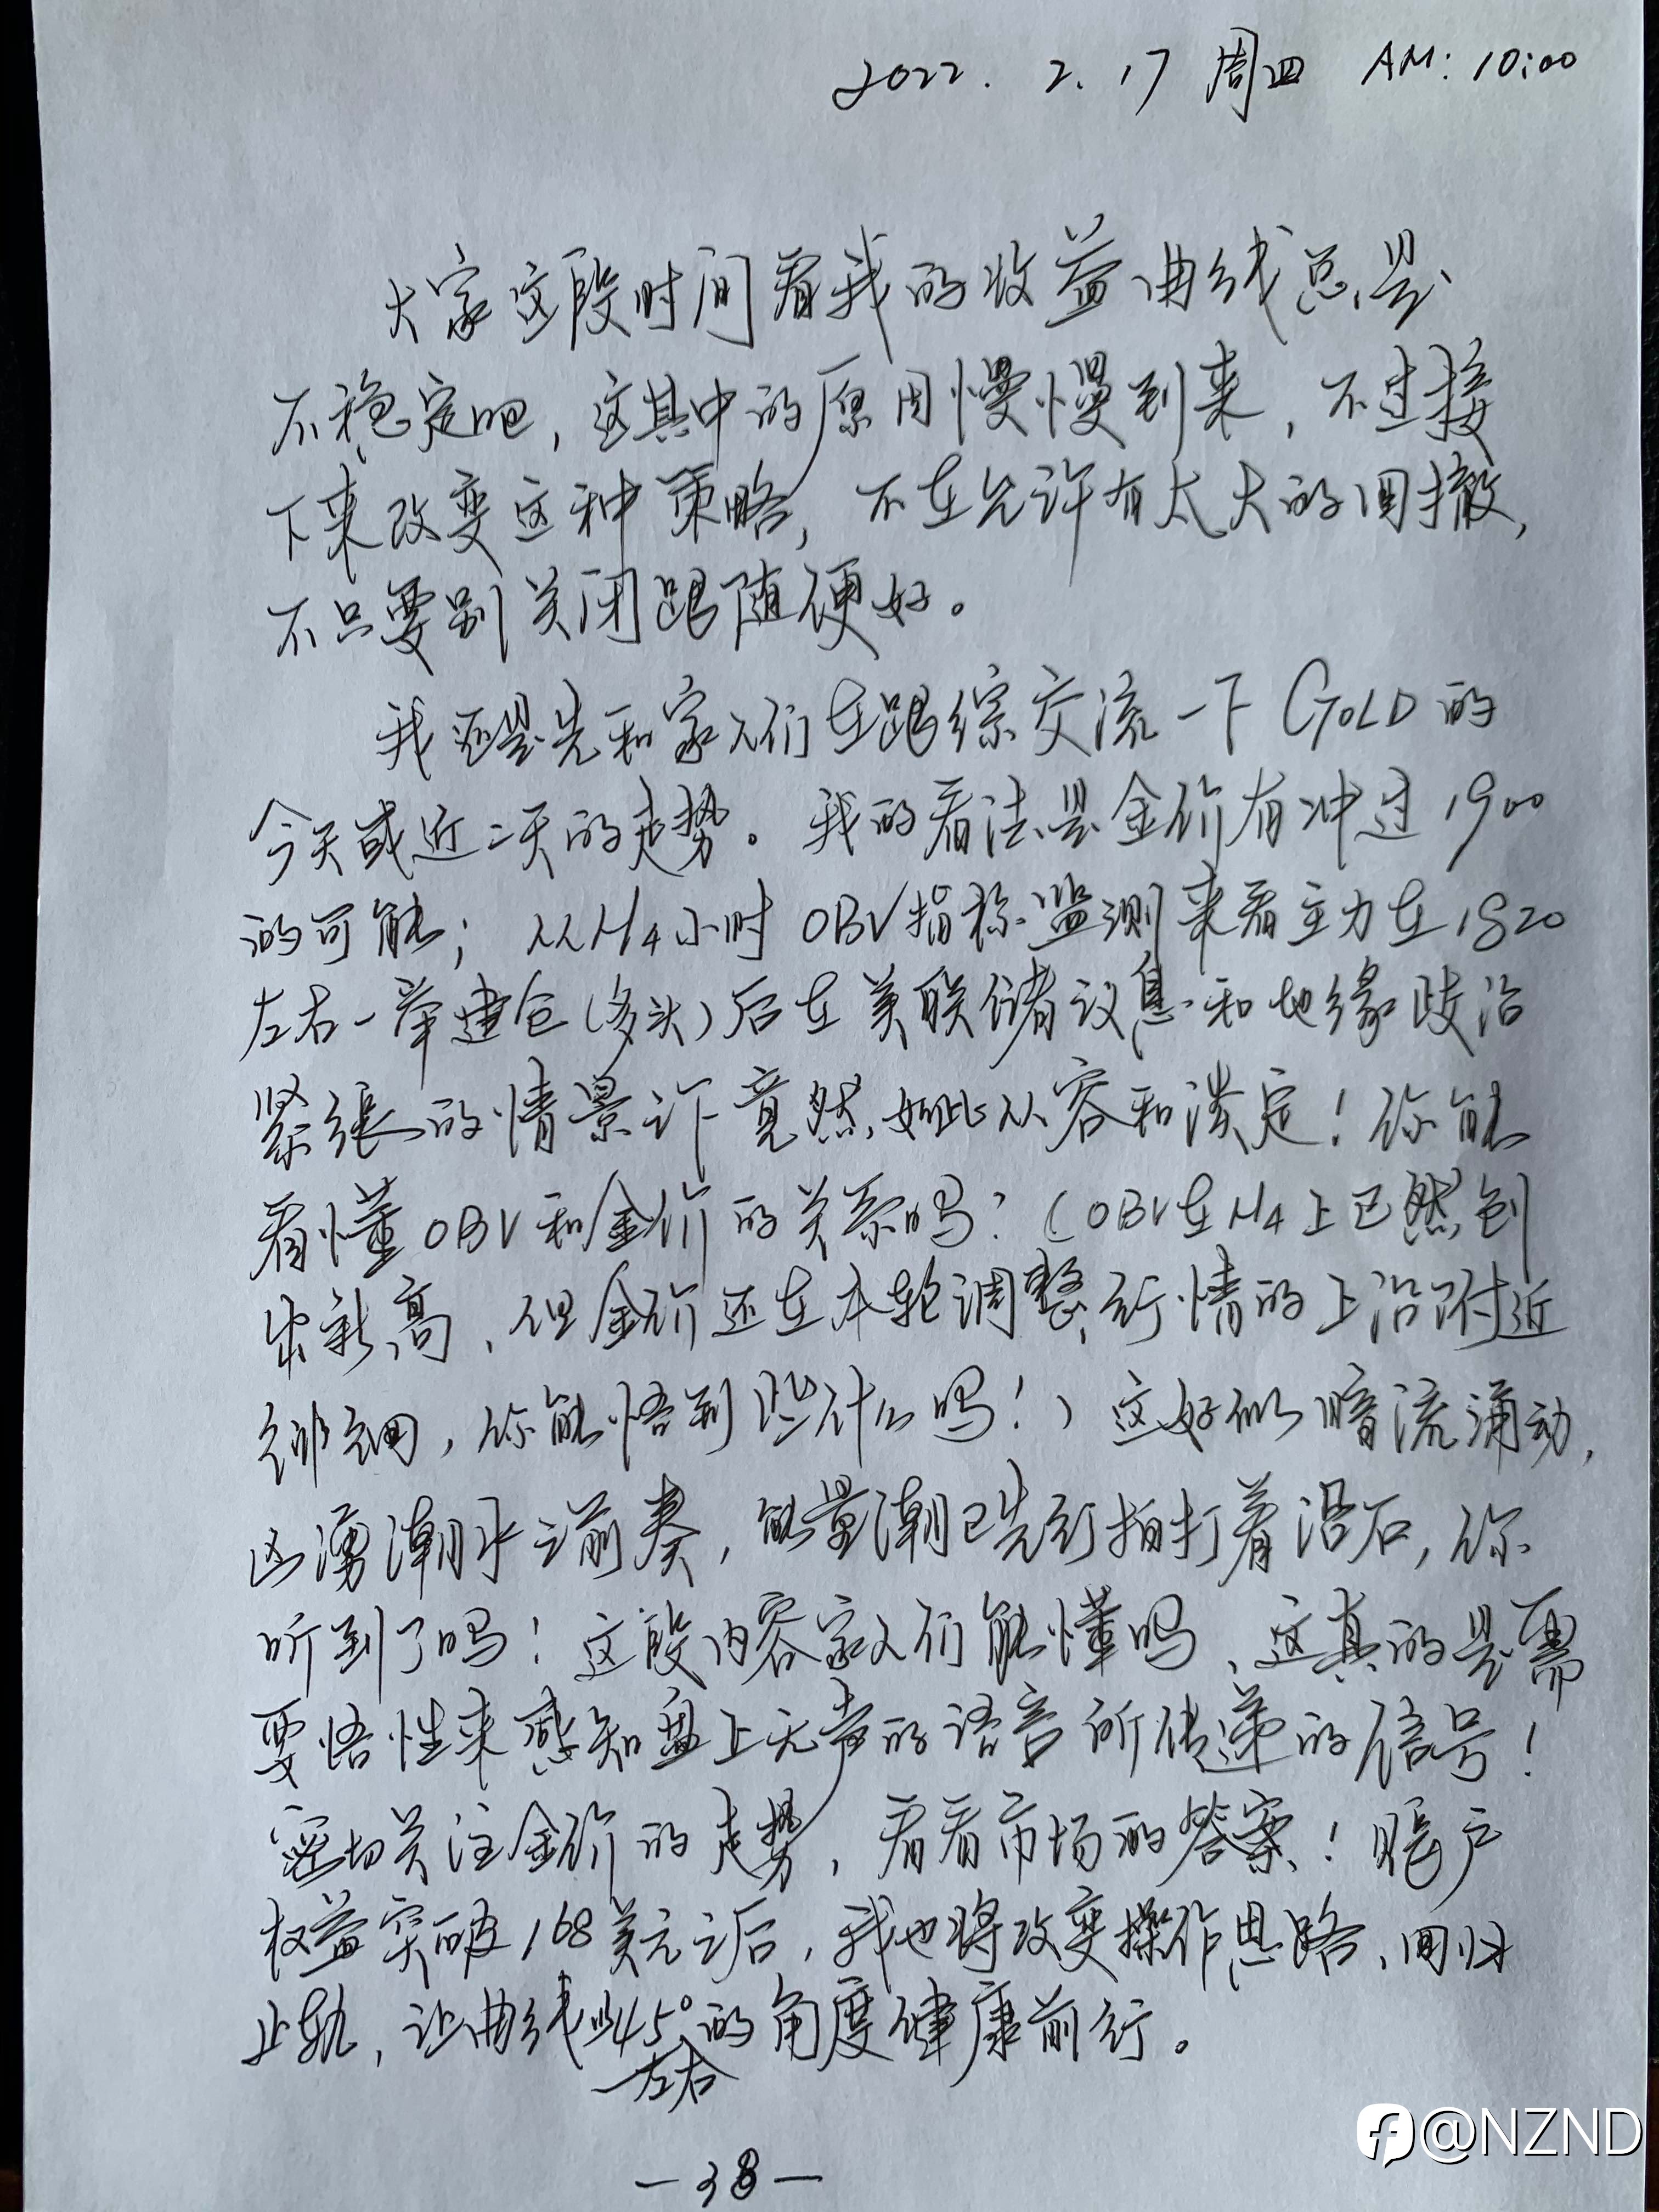 2022. 2. 17 周四 AM: 10:00
大家这段时间看我的收益曲线总是
不稳定吧，这其中的原因慢慢到来，不过接
下来改变这种策略，不在允许有太大的回撤，
不只要别关闭跟随便好。
我还是先和家人们在跟综交流一下 GOLD 的
今天或近二天的走势。我的看法是金价有冲过1900
的可能；从H4小时OBV指标监测来看主力在1820
左右一举建仓（多头）后在美联储议息和地缘政治
紧张的情景下竟然如此从容和淡定！你能
看懂OBV和金价的关系吗？（OBV在H4上已然创
出新高，但金价还在本轮调整行情的上沿附近
徘徊，你能悟到些什么吗！）这好似暗流涌动，
汹湧潮乎之前奏，能量潮已先行拍打着沿石，你
听到了吗！这段内容家人们能懂吗，这真的是需
要悟性来感知盘上无声的语言所传递的信号！
密切关注金价的走势，看看市场的答案！账户
权益突破168美元之后，我也将改变操作思路，回归
正轨，让曲线以45°左右的角度健康前行。
—38—
@NZND